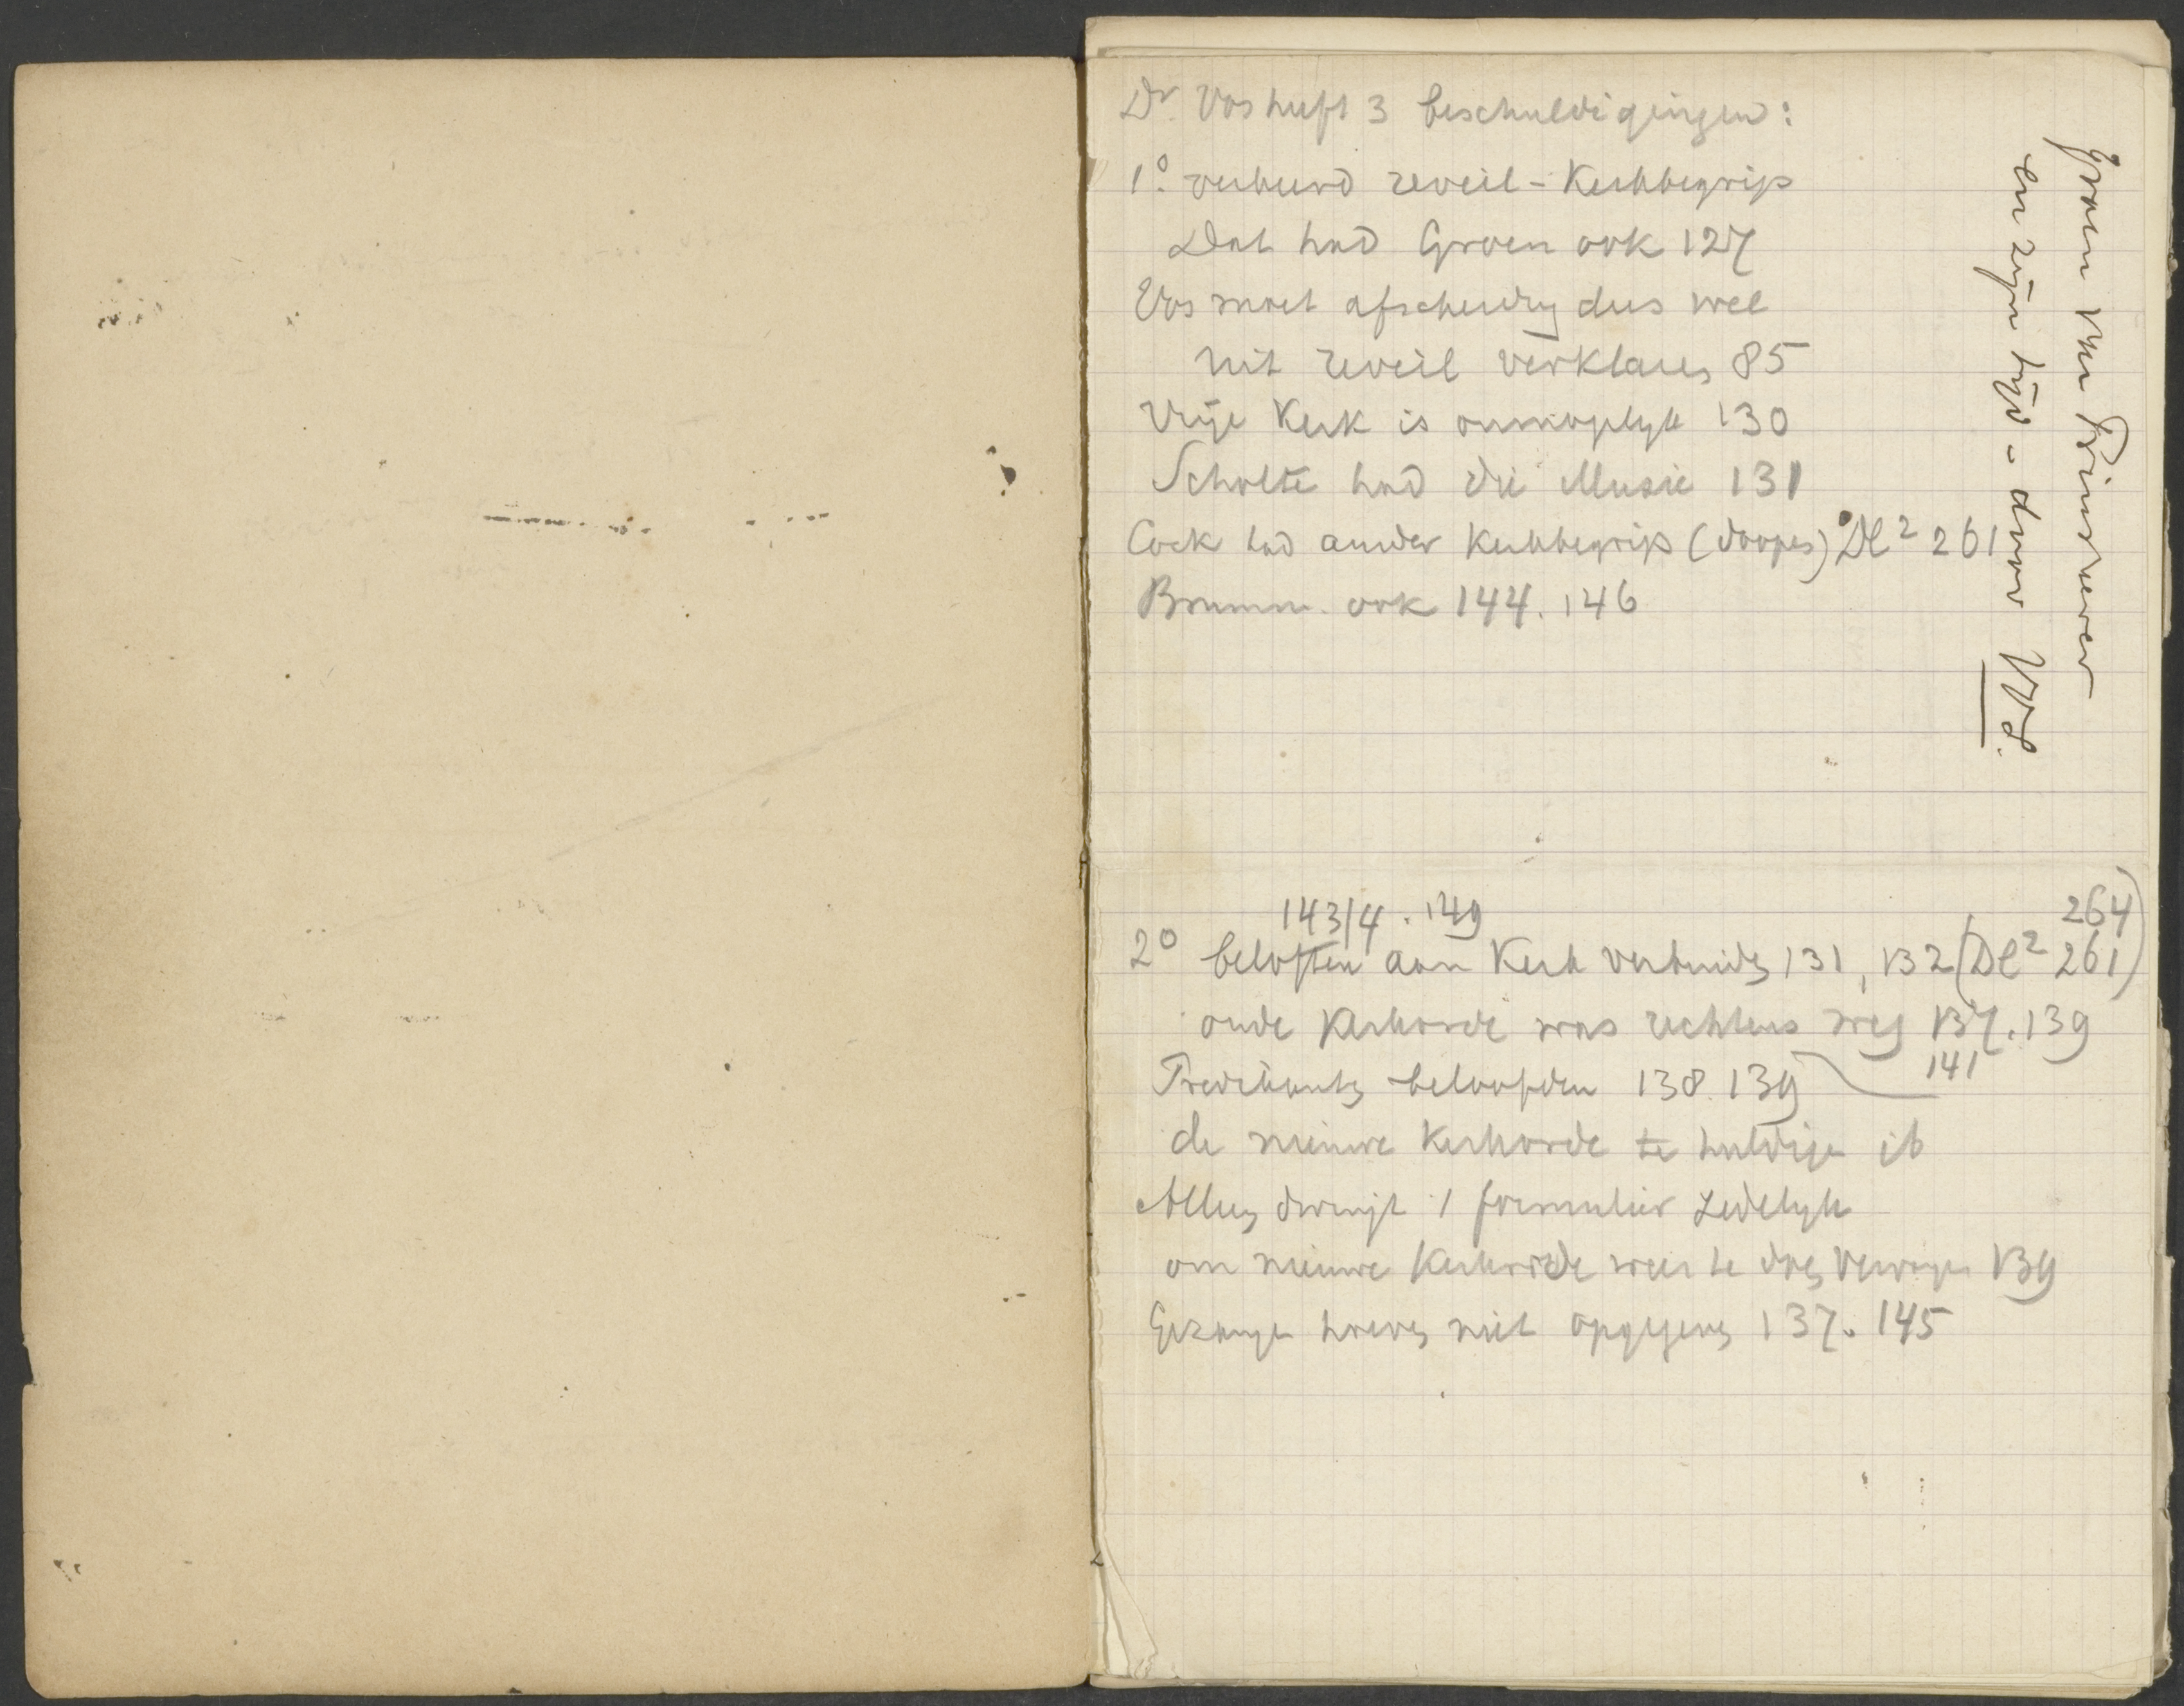 Dr. Vos heeft 3 beschuldigingen:
1o. verkeerd reveil-Kerkbegrip
Dat had Groen ook 127
Vos moet afscheidng dus wel
uit reveil verklaren 85
Vrije Kerk is onmogelijk 130
Scholte had die illusie 131
Cock had ander Kerkbegrip (doopen) Dl 2 261
Brumm. ook 144. 146
Groen van Prinsterer
en zijn tijd - door Vos.
143/4 . 149
264)
2o beloften aan Kerk verbinden 131, 132 (Dl 2 261)
oude Kerkorde was rechtens weg 137. 139
141
Predikanten beloofden 138. 139
de nieuwe Kerkorde te huldigen ib
Alleen dwingt 1 formulier zedelijk
om nieuwe Kerkorde weer te doen vervangen 139
Gezangen hoeven niet opgegeven 137. 145